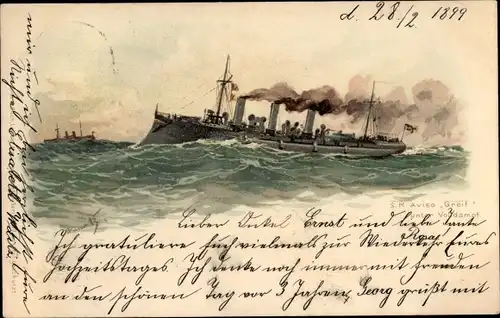 d. 28/2. 1899
S.M. Aviso "Greif"
unter Volldampf
Lieber Onkel Ernst und liebe Tante
Rosa!
Ich gratuliere Euch vielmals zur Wiederkehr Eures
Hochzeitstages. Ich denke noch immer mit Freuden
an den schönen Tag vor 3 Jahren. Georg grüßt mit
mir und
Eure